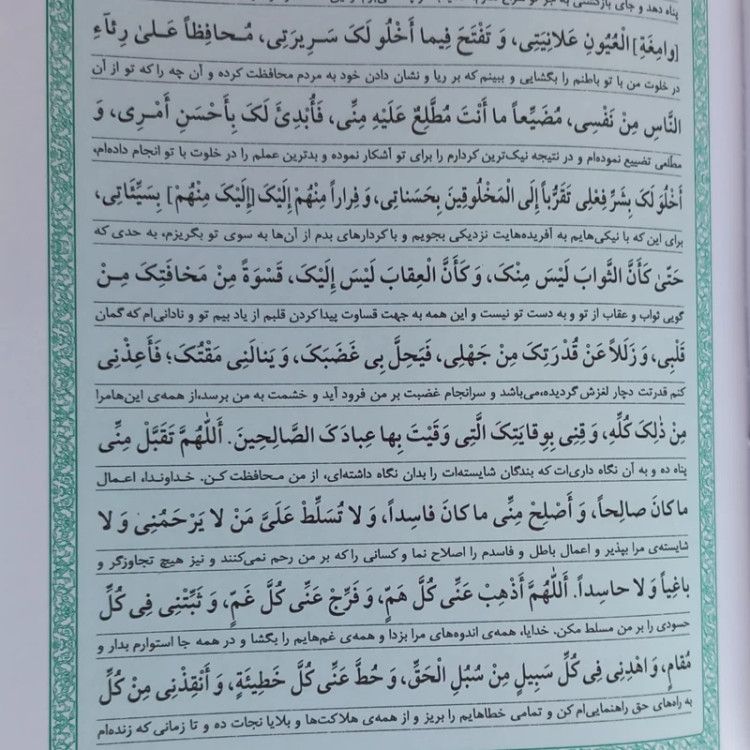 پناه دهد و جای بازگشتی به جز تو
[وامِغَةِ] الْعُیُونِ عَلانِیَتِی، وَ تَفْتَحَ فِیما أَخْلُو لَکَ سَرِیرَتِی، مُحافِظاً عَلیٰ رِئآءِ
در خلوت من با تو باطنم را بگشایی و ببینم که بر ریا و نشان دادن خود به مردم محافظت کرده و آن چه را که تو از آن
النّاسِ مِنْ نَفْسِی، مُضَیِّعاً ما أَنْتَ مُطَّلِعٌ عَلَیْهِ مِنِّی، فَأُبْدِئَ لَکَ بِأَحْسَنِ أَمْرِی، وَ
مطلعی تضییع نموده‌ام و در نتیجه نیک‌ترین کردارم را برای تو آشکار نموده و بدترین عملم را در خلوت با تو انجام داده‌ام،
أَخْلُوَ لَکَ بِشَرِّ فِعْلِی تَقَرُّباً إِلَی الْمَخْلُوقِینَ بِحَسَناتِی، وَ فِراراً مِنْهُمْ إِلَیْکَ [إِلَیْکَ مِنْهُمْ] بِسَیِّئاتِی،
برای این که با نیکی‌هایم به آفریده‌هایت نزدیکی بجویم و با کردارهای بدم از آن‌ها به سوی تو بگریزم، به حدی که
حَتّیٰ کَأَنَّ الثَّوابَ لَیْسَ مِنْکَ، وَ کَأَنَّ الْعِقابَ لَیْسَ إِلَیْکَ، قَسْوَةً مِنْ مَخافَتِکَ مِنْ
گویی ثواب و عقاب از تو و به دست تو نیست و این همه به جهت قساوت پیدا کردن قلبم از یاد بیم تو و نادانی‌ام که گمان
قَلْبِی، وَ زَلَلاً عَنْ قُدْرَتِکَ مِنْ جَهْلِی، فَیَحِلَّ بِی غَضَبُکَ، وَ یَنالَنِی مَقْتُکَ؛ فَأَعِذْنِی
کنم قدرتت دچار لغزش گردیده،می‌باشد و سرانجام غضبت بر من فرود آید و خشمت به من برسد،از همه‌ی این‌هامرا
مِنْ ذٰلِکَ کُلِّهِ، وَ قِنِی بِوِقایَتِکَ الَّتِی وَقَیْتَ بِها عِبادَکَ الصّالِحِینَ. أَللّٰهُمَّ تَقَبَّلْ مِنِّی
پناه ده و به آن نگاه داری‌ات که بندگان شایسته‌ات را بدان نگاه داشته‌ای، از من محافظت کن. خداوندا، اعمال
ما کانَ صالِحاً، وَ أَصْلِحْ مِنِّی ما کانَ فاسِداً، وَ لا تُسَلِّطْ عَلَیَّ مَنْ لا یَرْحَمُنِی وَ لا
شایسته‌ی مرا بپذیر و اعمال باطل و فاسدم را اصلاح نما و کسانی را که بر من رحم نمی‌کنند و نیز هیچ تجاوزگر و
باغِیاً وَ لا حاسِداً. أَللّٰهُمَّ أَذْهِبْ عَنِّی کُلَّ هَمٍّ، وَ فَرِّجْ عَنِّی کُلَّ غَمٍّ، وَ ثَبِّتْنِی فِی کُلِّ
حسودی را بر من مسلط مکن. خدایا، همه‌ی اندوه‌های مرا بزدا و همه‌ی غم‌هایم را بگشا و در همه جا استوارم بدار و
مُقامٍ، وَ اهْدِنِی فِی کُلِّ سَبِیلٍ مِنْ سُبُلِ الْحَقِّ، وَ حُطَّ عَنِّی کُلَّ خَطِیئَةٍ، وَ أَنْقِذْنِی مِنْ کُلِّ
به راه‌های حق راهنمایی‌ام کن و تمامی خطاهایم را بریز و از همه‌ی هلاکت‌ها و بلایا نجات ده و تا زمانی که زنده‌ام